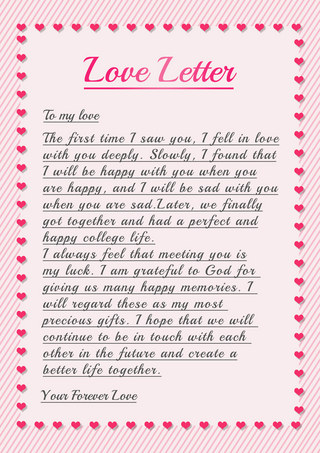 Love Letter
To my love
The first time I saw you, I fell in love
with you deeply. Slowly, I found that
I will be happy with you when you
are happy, and I will be sad with you
when you are sad.Later, we finally
got together and had a perfect and
happy college life.
I always feel that meeting you is
my luck. I am grateful to God for
giving us many happy memories. I
will regard these as my most
precious gifts. I hope that we will
continue to be in touch with each
other in the future and create a
better life together.
Your Forever Love